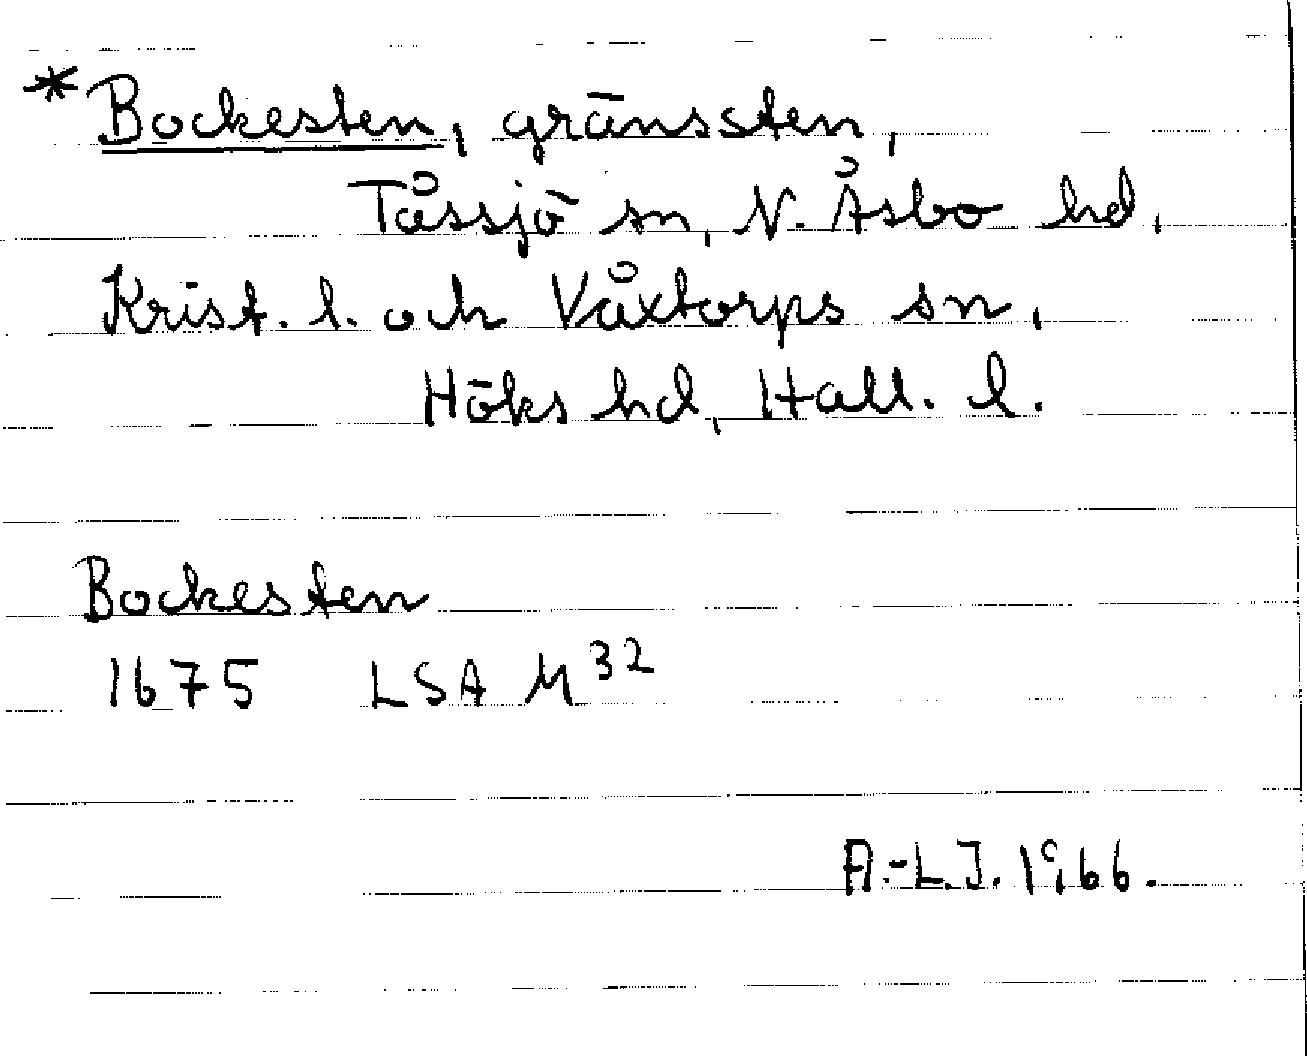 *Bockesten, gränssten,
Tåssjö sn, N. Åsbo hd,
Krist. l. och Våxtorps sn,
Höks hd, Hall. l.
Bockesten
1675 LSA M³²
A.-L.J. 1966.